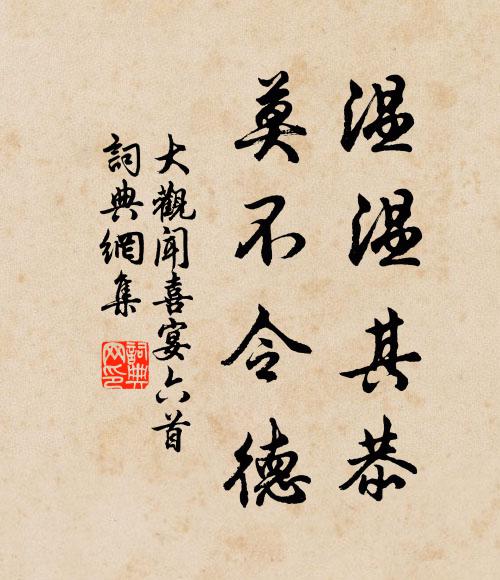 温温其恭
莫不令德
大觀聞喜宴六首
詞典網集
詞典
网印